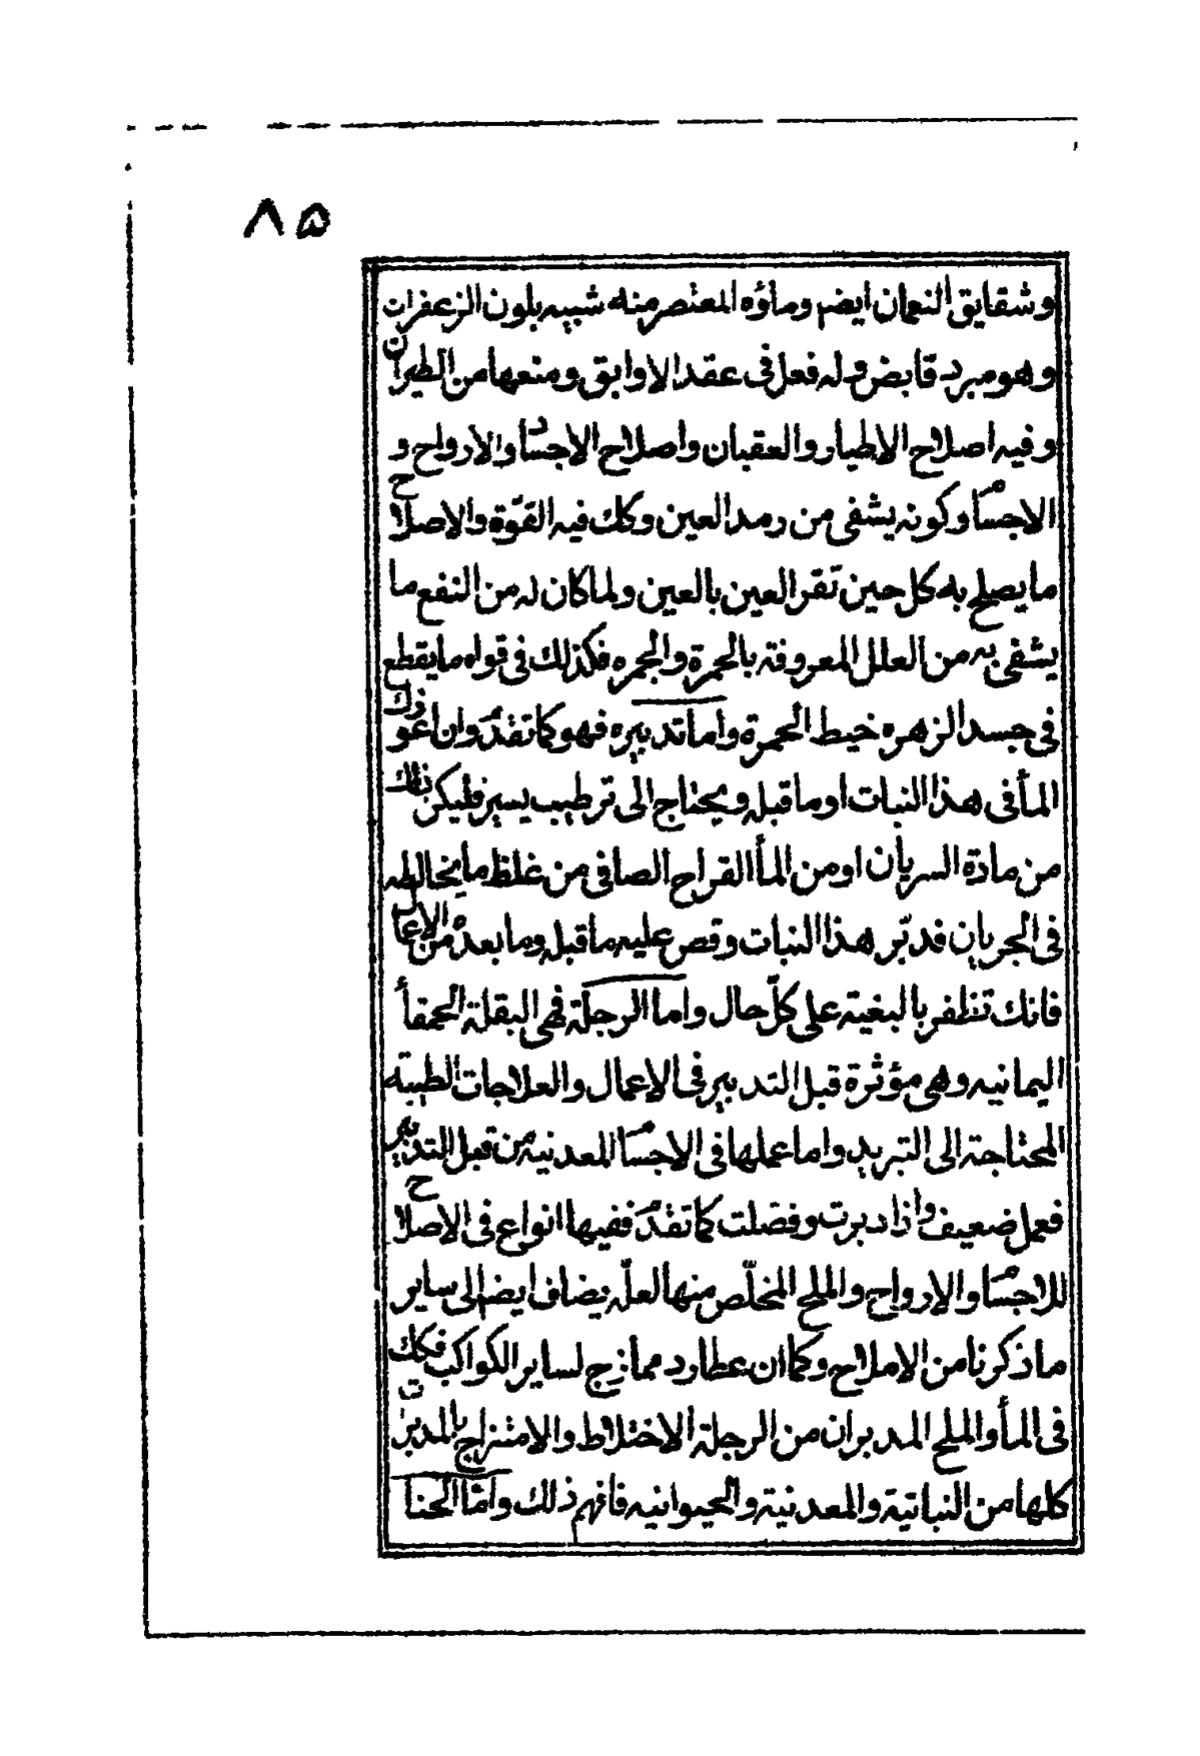 ٨٥
وشقايق النعمان ايضم وماؤه المعتصر منه شبيه بلون الزعفران
وهو مبرد قابض وله فعل فى عقد الاوابق ومنعها من الطيران
وفيه اصلاح الاطيار والعقبان واصلاح الاجساد والارواح و
الاجسام وكونه يشفى من رمد العين وكك فيه القوّة والاصلاح
ما يصلح به كل حين تقر العين بالعين ولما كان له من النفع ما
يشفى به من العلل المعروفة بالحمرة والجمره فكذلك فى قواه ما يقطع
فى جسد الزهره خيط الحمرة واما تدبيره فهو كما تقدم وان اعوذك
المأ فى هذا النبات او ما قبله ويحتاج الى ترطيب يسير فليكن ذلك
من مادة السريان او من المأ القراح الصافى من غلظ ما يخالطه
فى الجريان فدبّر هذا النبات وقص عليه ما قبله وما بعده من الاعمال
فانك تظفر بالبغية على كلّ حال واما الرجلة فهى البقلة الحمقأ
اليمانيه وهى مؤثرة قبل التدبير فى الاعمال والعلاجات الطبيّه
المحتاجة الى التبريد واما عملها فى الاجسام المعدنية من قبل التدبير
فعمل ضعيف واذا دبرت وفصلت كما تقدم ففيها انواع فى الاصلاح
للاجسام والارواح والملح المخلّص منها لعلّه يضاف ايضم الى ساير
ما ذكرنا من الاملاح وكما ان عطارد ممازج لساير الكواكب فكك
فى المأ والملح المدبران من الرجلة الاختلاط والامتزاج بالمدبرات
كلها من النباتية والمعدنية والحيوانيه فافهم ذلك وامّا الحنا